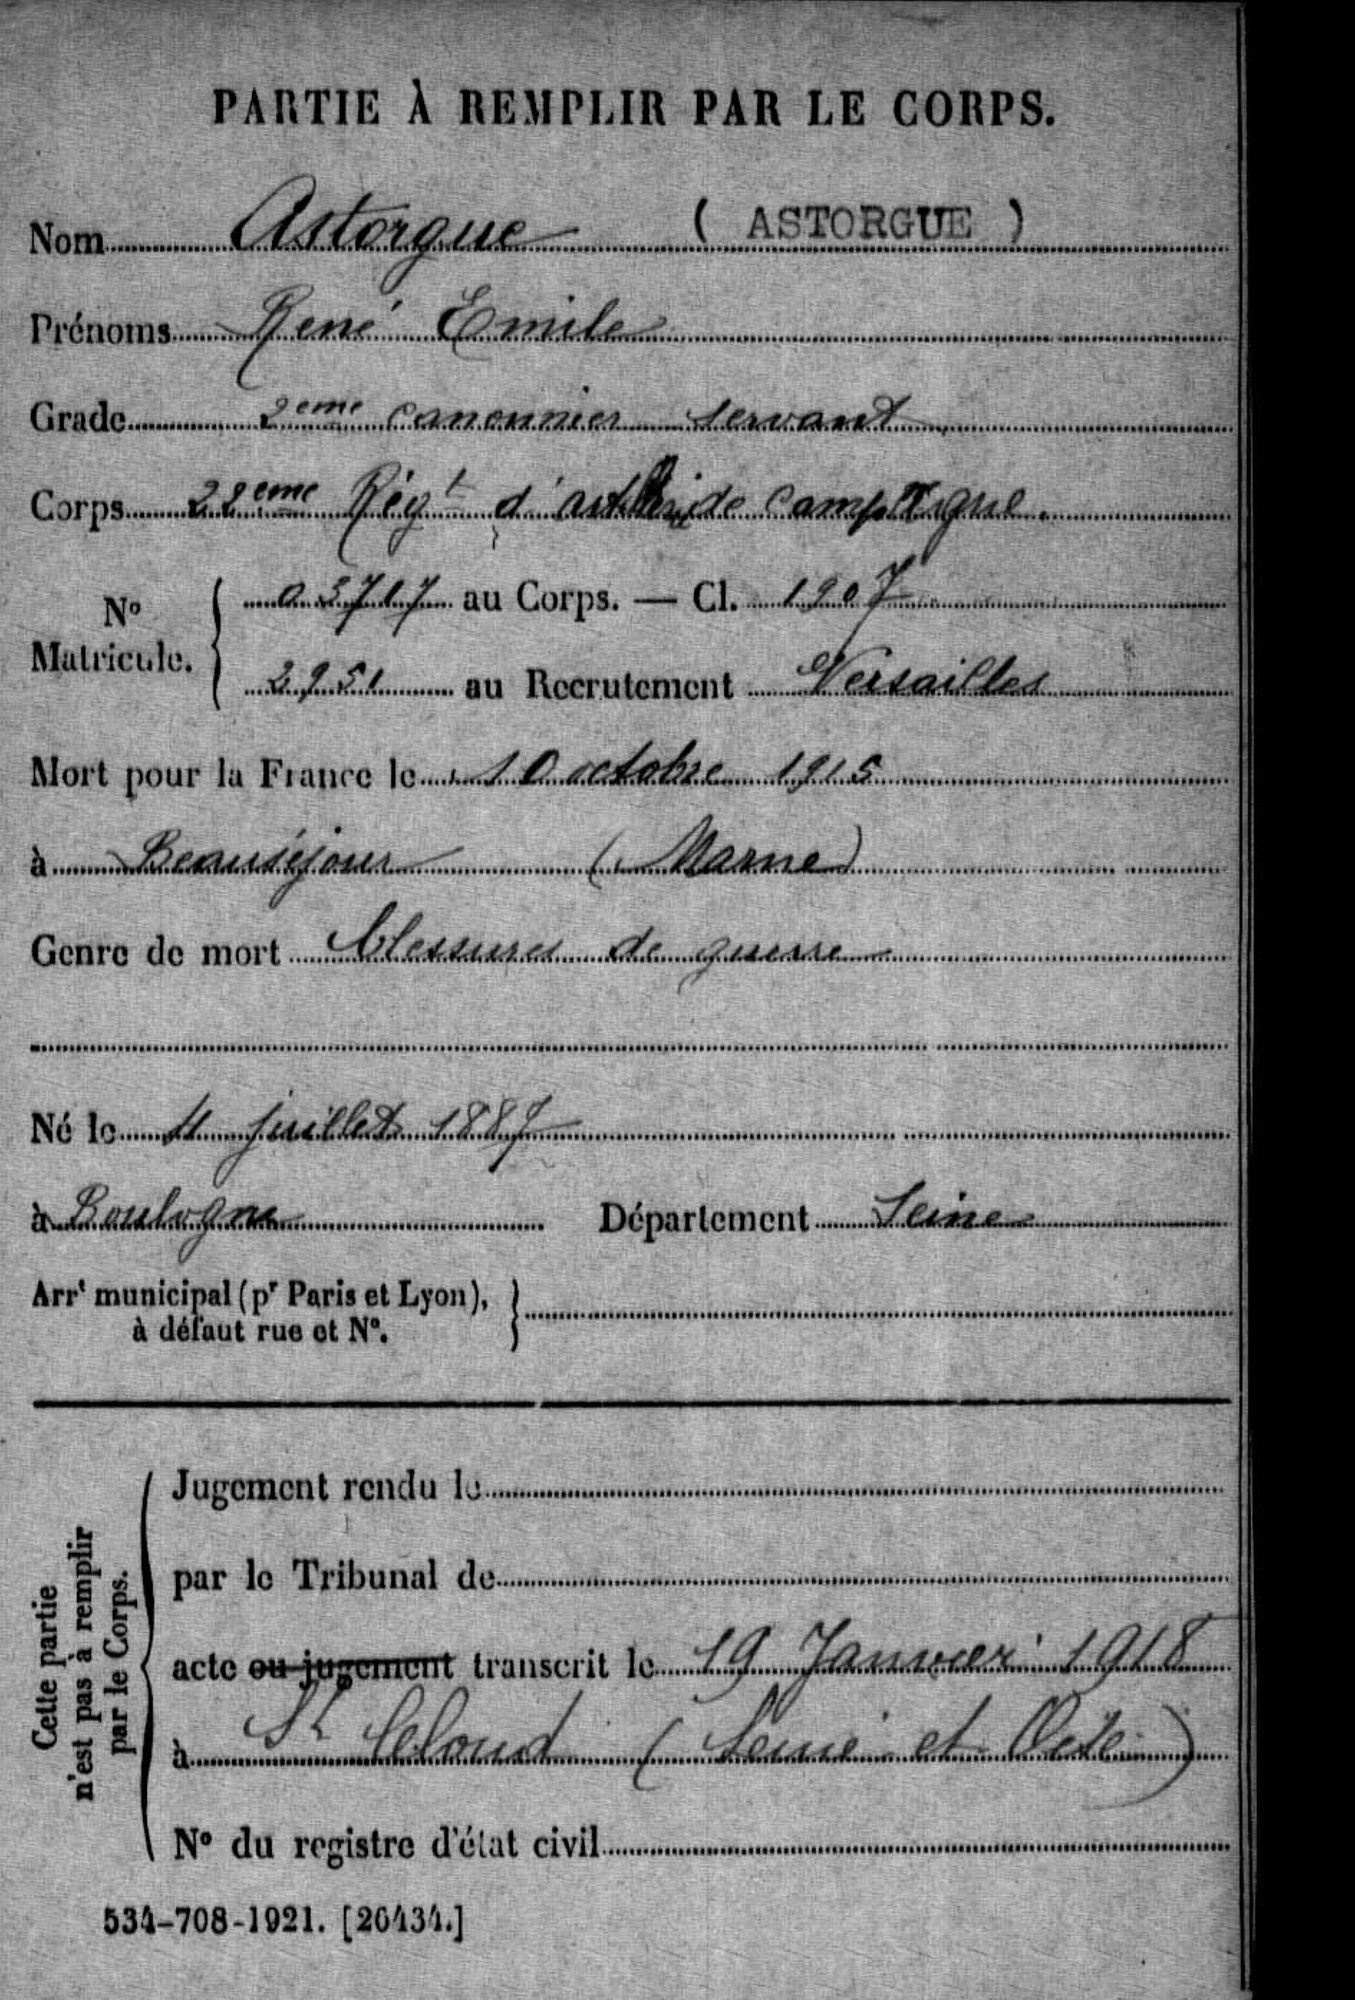 PARTIE À REMPLIR PAR LE CORPS.
Nom Astorgue ( ASTORGUE )
Prénoms René Emile
Grade 2eme canonnier servant
Corps 22eme Régt d'artrie de campagne.
No Matricule. { 03717 au Corps. — Cl. 1907
2951 au Recrutement Versailles
Mort pour la France le 10 octobre 1915
à Beauséjour (Marne)
Genre de mort blessures de guerre
Né le 11 juillet 1887
à Boulogne Département Seine
Arrt municipal (pr Paris et Lyon), }
à défaut rue et No.
Cette partie
n'est pas à remplir
par le Corps.
Jugement rendu le
par le Tribunal de
acte ou jugement transcrit le 19 Janvier 1918
à St Cloud (Seine et Oise)
No du registre d'état civil
534-708-1921. [26434.]